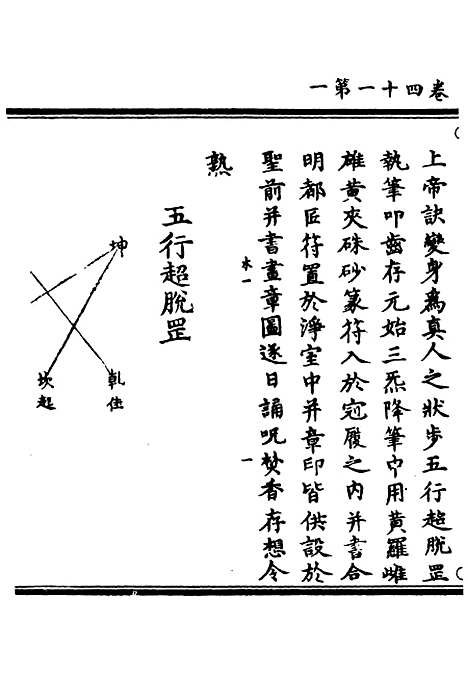 卷四十一第一
上帝訣變身為真人之狀步五行超脫罡
執筆叩齒存元始三炁降筆中用黃羅雌
雄黃夾硃砂篆符入於冠履之內并書合
明都匠符置於淨室中并章印皆供設於
聖前并書畫章圖逐日誦呪焚香存想令
本一
一
熟
五行超脫罡
坤
乹住
坎起